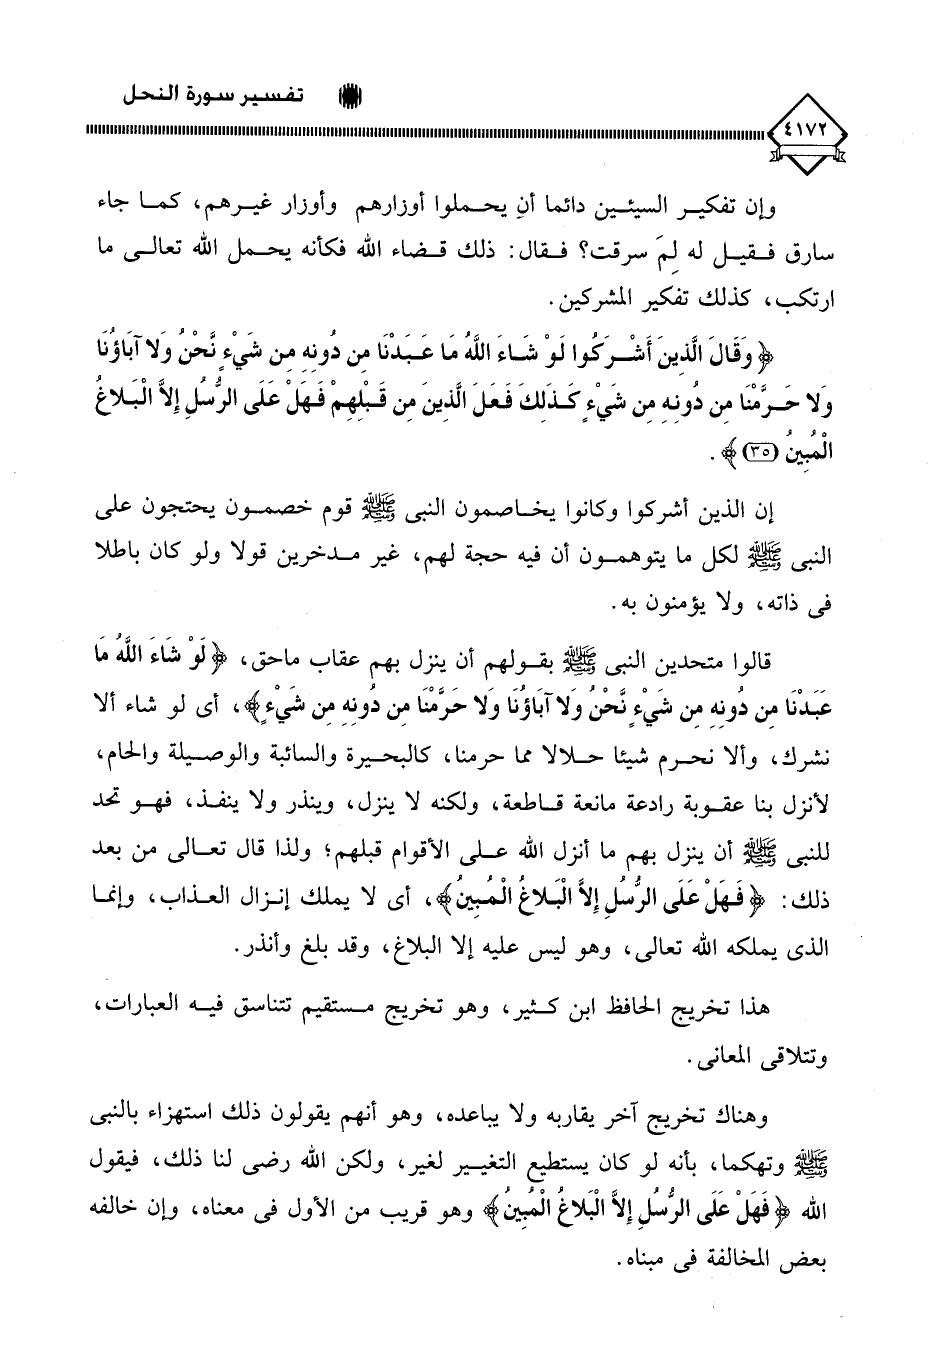 تفسير سورة النحل
٤١٧٢
وإن تفكير السيئين دائما أن يحملوا أوزارهم وأوزار غيرهم، كما جاء
سارق فقيل له لِمَ سرقت؟ فقال: ذلك قضاء الله فكأنه يحمل الله تعالى ما
ارتكب، كذلك تفكير المشركين.
﴿وَقَالَ الَّذِينَ أَشْرَكُوا لَوْ شَاءَ اللَّهُ مَا عَبَدْنَا مِن دُونِهِ مِن شَيْءٍ نَّحْنُ وَلا آبَاؤُنَا
وَلا حَرَّمْنَا مِن دُونِهِ مِن شَيْءٍ كَذَلِكَ فَعَلَ الَّذِينَ مِن قَبْلِهِمْ فَهَلْ عَلَى الرُّسُلِ إِلاَّ الْبَلاغُ
الْمُبِينُ (٣٥)﴾.
إن الذين أشركوا وكانوا يخاصمون النبى ﷺ قوم خصمون يحتجون على
النبى ﷺ لكل ما يتوهمون أن فيه حجة لهم، غير مدخرين قولا ولو كان باطلا
فى ذاته، ولا يؤمنون به.
قالوا متحدين النبى ﷺ بقولهم أن ينزل بهم عقاب ماحق، ﴿لَوْ شَاءَ اللَّهُ مَا
عَبَدْنَا مِن دُونِهِ مِن شَيْءٍ نَّحْنُ وَلا آبَاؤُنَا وَلا حَرَّمْنَا مِن دُونِهِ مِن شَيْءٍ﴾، أى لو شاء ألا
نشرك، وألا نحرم شيئا حلالا مما حرمنا، كالبحيرة والسائبة والوصيلة والحام،
لأنزل بنا عقوبة رادعة مانعة قاطعة، ولكنه لا ينزل، وينذر ولا ينفذ، فهو تحد
للنبى ﷺ أن ينزل بهم ما أنزل الله على الأقوام قبلهم؛ ولذا قال تعالى من بعد
ذلك: ﴿فَهَلْ عَلَى الرُّسُلِ إِلاَّ الْبَلاغُ الْمُبِينُ﴾، أى لا يملك إنزال العذاب، وإنما
الذى يملكه الله تعالى، وهو ليس عليه إلا البلاغ، وقد بلغ وأنذر.
هذا تخريج الحافظ ابن كثير، وهو تخريج مستقيم تتناسق فيه العبارات،
وتتلاقى المعانى.
وهناك تخريج آخر يقاربه ولا يباعده، وهو أنهم يقولون ذلك استهزاء بالنبى
ﷺ وتهكما، بأنه لو كان يستطيع التغيير لغير، ولكن الله رضى لنا ذلك، فيقول
الله ﴿فَهَلْ عَلَى الرُّسُلِ إِلاَّ الْبَلاغُ الْمُبِينُ﴾ وهو قريب من الأول فى معناه، وإن خالفه
بعض المخالفة فى مبناه.